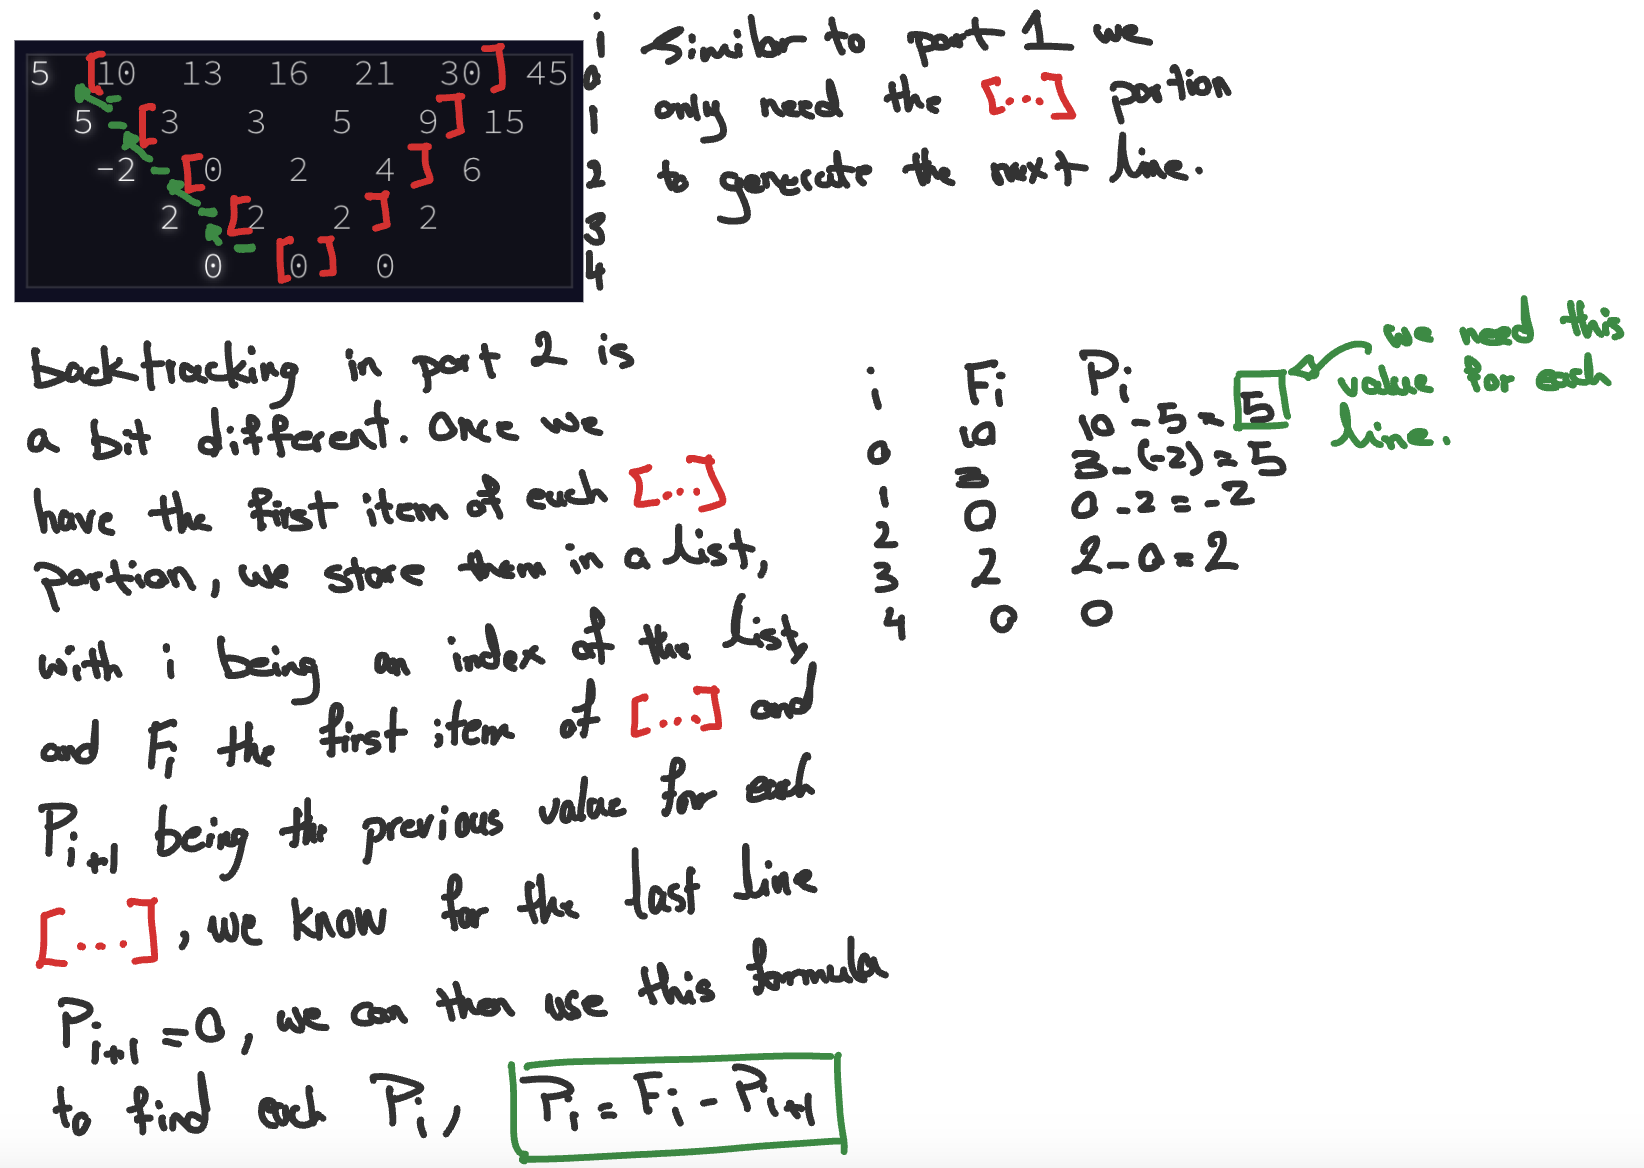 5 [10 13 16 21 30] 45
5 [3 3 5 9] 15
-2 [0 2 4] 6
2 [2 2] 2
0 [0] 0
i
0
1
2
3
4
Similar to part 1 we
only need the [...] portion
to generate the next line.
backtracking in part 2 is
a bit different. Once we
have the first item of each [...]
portion, we store them in a list,
with i being an index of the list,
and Fi the first item of [...] and
Pi+1 being the previous value for each
[...], we know for the last line
Pi+1 = 0, we can then use this formula
to find each Pi, Pi = Fi - Pi+1
i Fi Pi
0 10 10 - 5 = 5
1 3 3 - (-2) = 5
2 0 0 - 2 = -2
3 2 2 - 0 = 2
4 0 0
we need this
value for each
line.